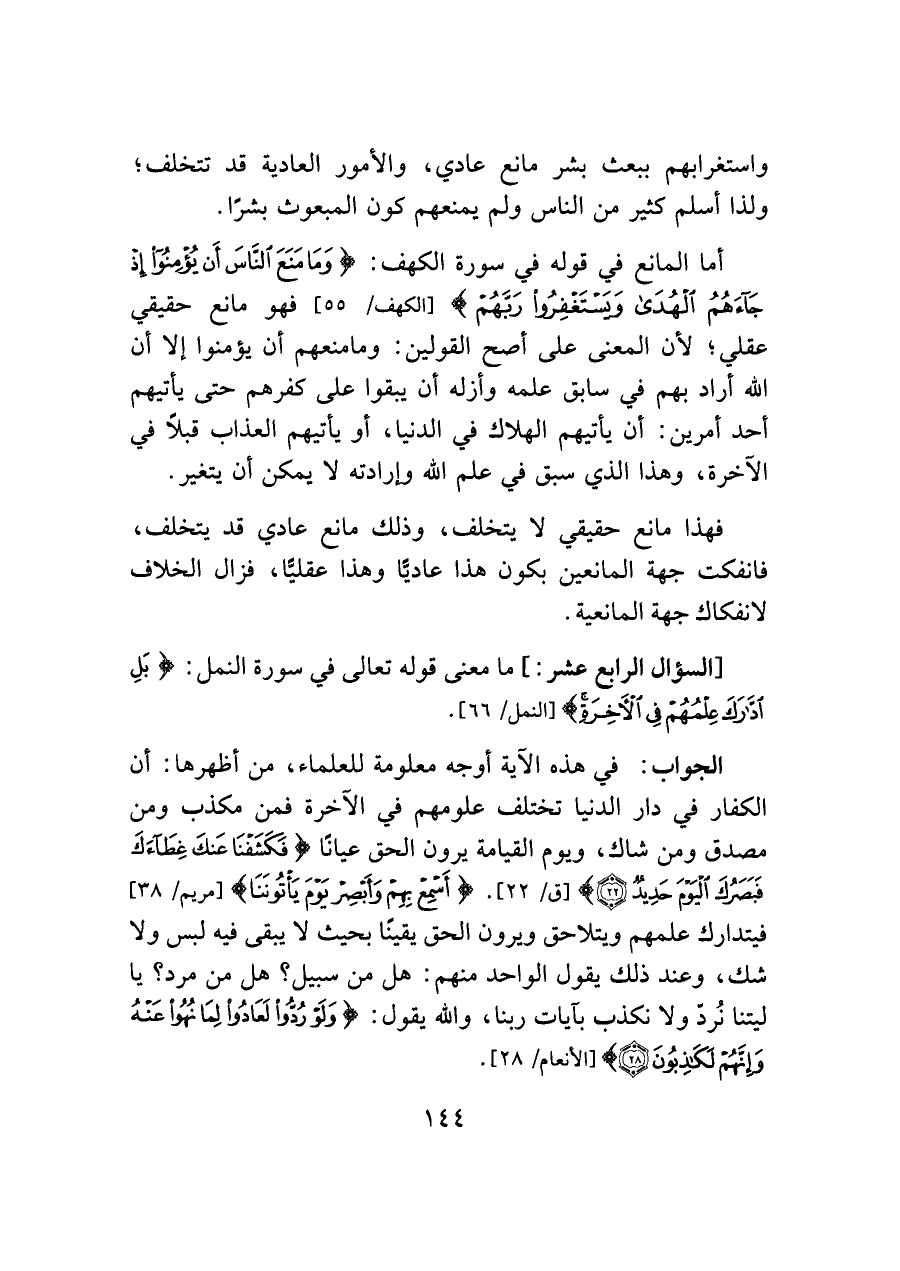 واستغرابهم ببعث بشر مانع عادي، والأمور العادية قد تتخلف؛
ولذا أسلم كثير من الناس ولم يمنعهم كون المبعوث بشرًا.
أما المانع في قوله في سورة الكهف: ﴿ وَمَا مَنَعَ ٱلنَّاسَ أَن يُؤْمِنُوٓا۟ إِذْ
جَآءَهُمُ ٱلْهُدَىٰ وَيَسْتَغْفِرُوا۟ رَبَّهُمْ ﴾ [الكهف/ ٥٥] فهو مانع حقيقي
عقلي؛ لأن المعنى على أصح القولين: ومامنعهم أن يؤمنوا إلا أن
الله أراد بهم في سابق علمه وأزله أن يبقوا على كفرهم حتى يأتيهم
أحد أمرين: أن يأتيهم الهلاك في الدنيا، أو يأتيهم العذاب قبلاً في
الآخرة، وهذا الذي سبق في علم الله وإرادته لا يمكن أن يتغير.
فهذا مانع حقيقي لا يتخلف، وذلك مانع عادي قد يتخلف،
فانفكت جهة المانعين بكون هذا عاديًّا وهذا عقليًّا، فزال الخلاف
لانفكاك جهة المانعية.
[السؤال الرابع عشر:] ما معنى قوله تعالى في سورة النمل: ﴿ بَلِ
ٱدَّٰرَكَ عِلْمُهُمْ فِى ٱلْأَخِرَةِۚ ﴾ [النمل/ ٦٦].
الجواب: في هذه الآية أوجه معلومة للعلماء، من أظهرها: أن
الكفار في دار الدنيا تختلف علومهم في الآخرة فمن مكذب ومن
مصدق ومن شاك، ويوم القيامة يرون الحق عيانًا ﴿ فَكَشَفْنَا عَنكَ غِطَآءَكَ
فَبَصَرُكَ ٱلْيَوْمَ حَدِيدٌ ٢٢ ﴾ [ق/ ٢٢]. ﴿ أَسْمِعْ بِهِمْ وَأَبْصِرْ يَوْمَ يَأْتُونَنَا ﴾ [مريم/ ٣٨]
فيتدارك علمهم ويتلاحق ويرون الحق يقينًا بحيث لا يبقى فيه لبس ولا
شك، وعند ذلك يقول الواحد منهم: هل من سبيل؟ هل من مرد؟ يا
ليتنا نُردّ ولا نكذب بآيات ربنا، والله يقول: ﴿ وَلَوْ رُدُّوا۟ لَعَادُوا۟ لِمَا نُهُوا۟ عَنْهُ
وَإِنَّهُمْ لَكَٰذِبُونَ ٢٨ ﴾ [الأنعام/ ٢٨].
١٤٤